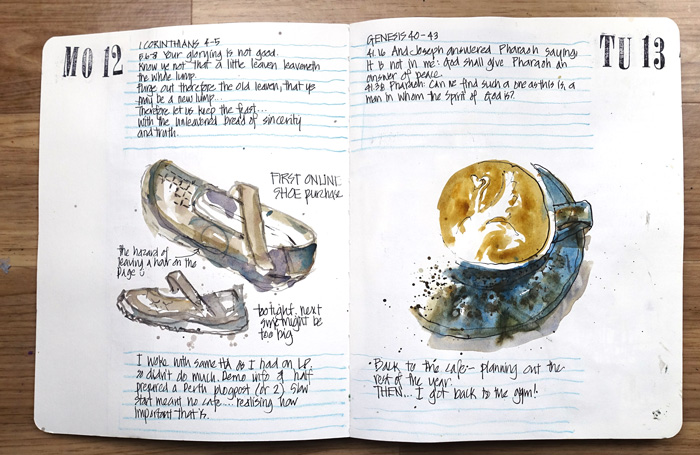 MO 12
1 CORINTHIANS 4-5
5:6-8 Your glorying is not good.
Know ye not that a little leaven leaveneth
the whole lump.
Purge out therefore the old leaven, that ye
may be a new lump....
Therefore let us keep the feast....
with the unleavened bread of sincerity
and truth.
FIRST ONLINE
SHOE purchase
the hazard of
leaving a hair on the
page
too tight. next
size might be
too big
I woke with same HA as I had on LP
so didn't do much. Demo info & half
prepared a Perth blogpost (or 2) Slow
start meant no cafe.... realising how
important that is.
TU 13
GENESIS 40-43
41:16 And Joseph answered Pharaoh saying
It is not in me: God shall give Pharaoh an
answer of peace.
41:38 Pharaoh: Can we find such a one as this is, a
man in whom the Spirit of God is?
Back to the cafe - planning out the
rest of the year.
THEN... I got back to the gym!